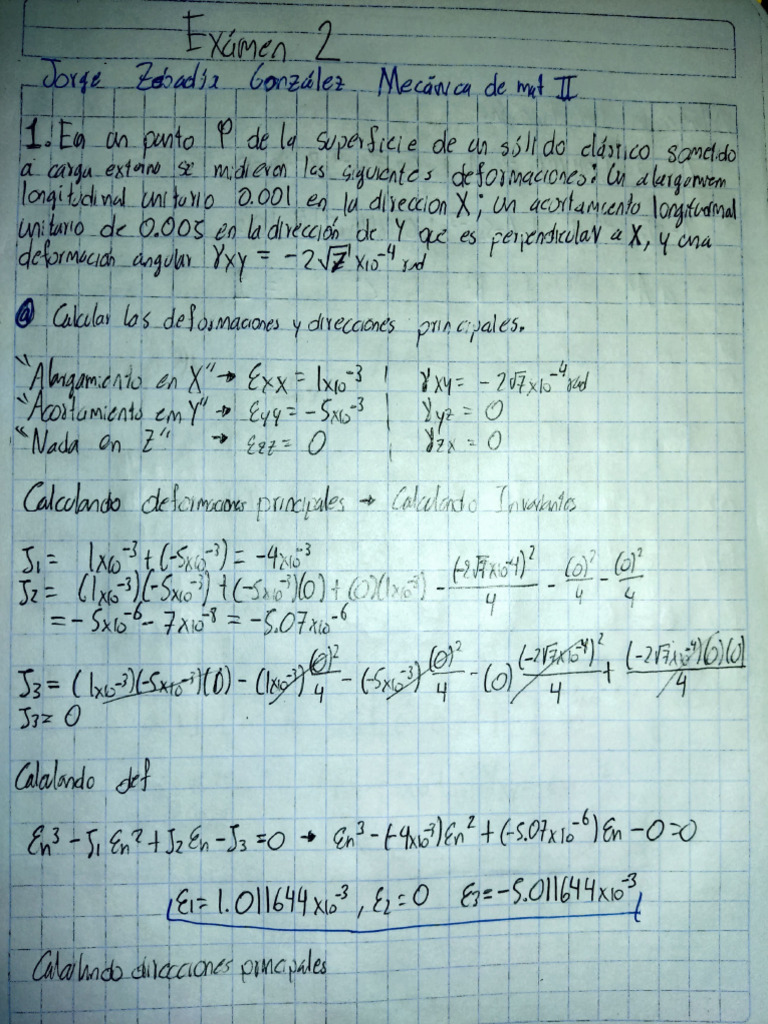 Exámen 2
Jorge Zebadúa González Mecánica de mat II
1. En un punto P de la superficie de un sólido elástico sometido
a carga externo se midieron las siguientes deformaciones: Un
longitudinal unitario 0.001 en la direccion X; un acortamiento longitudinal
unitario de 0.005 en la dirección de Y que es perpendicular a X, y una
deformación angular γxy = -2√7 x10⁻⁴ rad
ⓐ Calcular las deformaciones y direcciones principales.
"Alargamiento en X" → Exx = 1x10⁻³ | γxy = -2√7x10⁻⁴ rad
"Acortamiento em Y" → Eyy = -5x10⁻³ | γyz = 0
"Nada en Z" → Ezz = 0 | γzx = 0
Calculando deformaciones principales → Calculando Invariantes
J1 = 1x10⁻³ + (-5x10⁻³) = -4x10⁻³
J2 = (1x10⁻³)(-5x10⁻³) + (-5x10⁻³)(0) + (0)(1x10⁻³) - (-2√7x10⁻⁴)²/4 - (0)²/4 - (0)²/4
= -5x10⁻⁶ - 7x10⁻⁸ = -5.07x10⁻⁶
J3 = (1x10⁻³)(-5x10⁻³)(0) - (1x10⁻³)(0)²/4 - (-5x10⁻³)(0)²/4 - (0)(-2√7x10⁻⁴)²/4 + (-2√7x10⁻⁴)(0)(0)/4
J3 = 0
Calculando def
En³ - J1 En² + J2 En - J3 = 0 → En³ - (-4x10⁻³)En² + (-5.07x10⁻⁶)En - 0 = 0
E1 = 1.011644x10⁻³, E2 = 0 E3 = -5.011644x10⁻³
Calculando direcciones principales